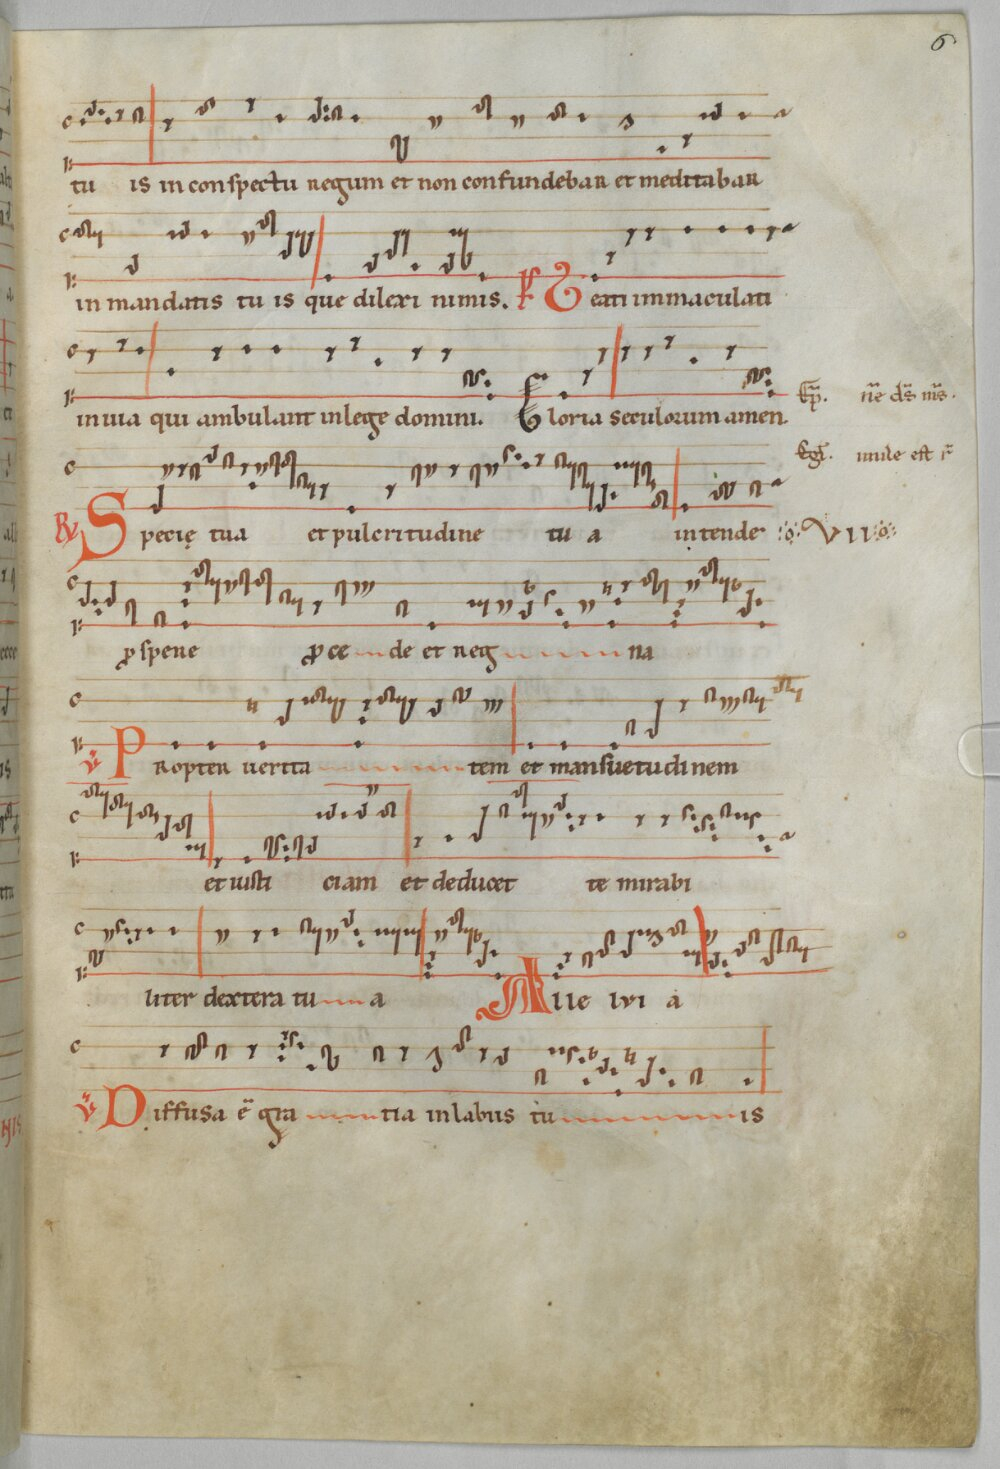 6
tu is in conspectu regum et non confundebar et meditabar
in mandatis tu is que dilexi nimis. Beati immaculati
in uia qui ambulant in lege domini. Gloria seculorum amen
Specię tua et pulcritudine tu a intende VII
ꝓspere ꝓce de et reg na
℣ Propter uerita tem et mansuetudinem
et iusti ciam et deducet te mirabi
liter dextera tu a Alle lui a
℣ Diffusa ē gra tia in labiis tu is